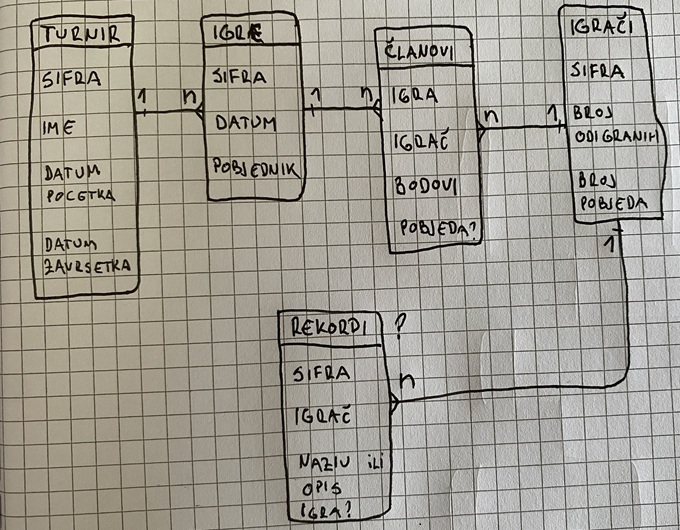 TURNIR
SIFRA
IME
DATUM
POCETKA
DATUM
ZAVRSETKA
1
n
IGRE
SIFRA
DATUM
POBJEDNIK
1
n
ČLANOVI
IGRA
IGRAČ
BODOVI
POBJEDA?
n
1
IGRAČI
SIFRA
BROJ
ODIGRANIH
BROJ
POBJEDA
1
REKORDI ?
SIFRA
IGRAČ
NAZIV ili
OPIS
IGRA?
n